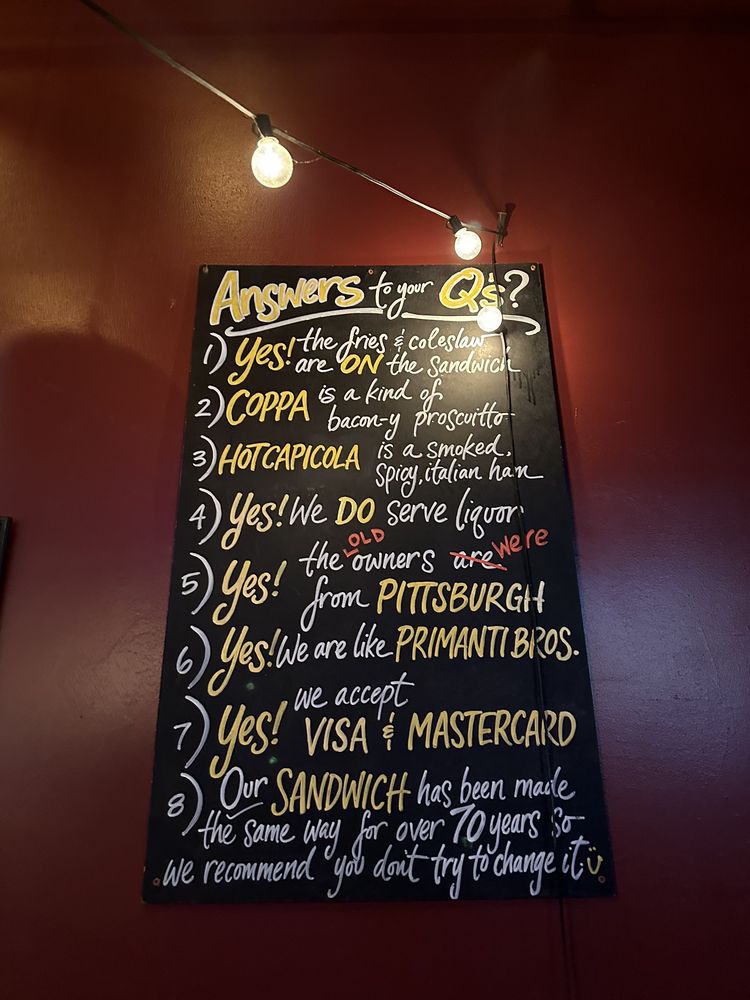 Answers to your Q's?
1) Yes! the fries & coleslaw
are ON the sandwich
2) COPPA is a kind of
bacon-y proscuitto
3) HOT CAPICOLA is a smoked,
spicy, italian ham
4) Yes! We DO serve liquor
5) Yes! the OLD owners are were
from PITTSBURGH
6) Yes! We are like PRIMANTI BROS.
7) Yes! we accept
VISA & MASTERCARD
8) Our SANDWICH has been made
the same way for over 70 years so
we recommend you don't try to change it Ü